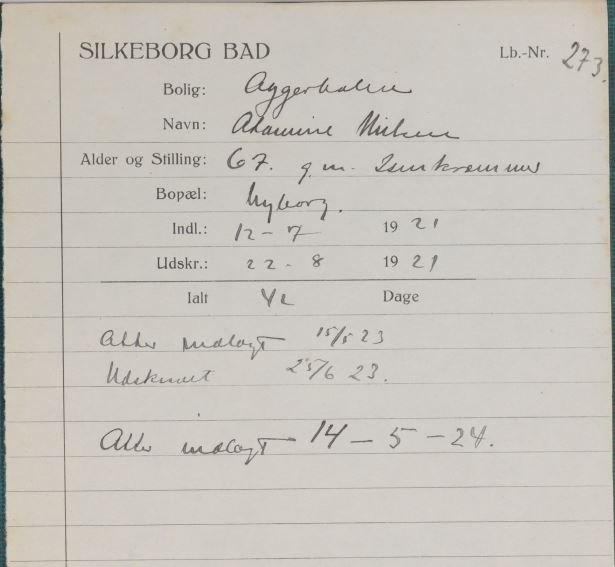 SILKEBORG BAD
Lb.-Nr. 273.
Bolig: Aggerholm
Navn: Adamine Nielsen
Alder og Stilling: 67. g. m. Isenkræmmer
Bopæl: Nyborg.
Indl.: 12 - 7 1921
Udskr.: 22 - 8 1921
Ialt 42 Dage
Atter indlagt 15/5 23
Udskrevet 25/6 23.
Atter indlagt 14 - 5 - 24.